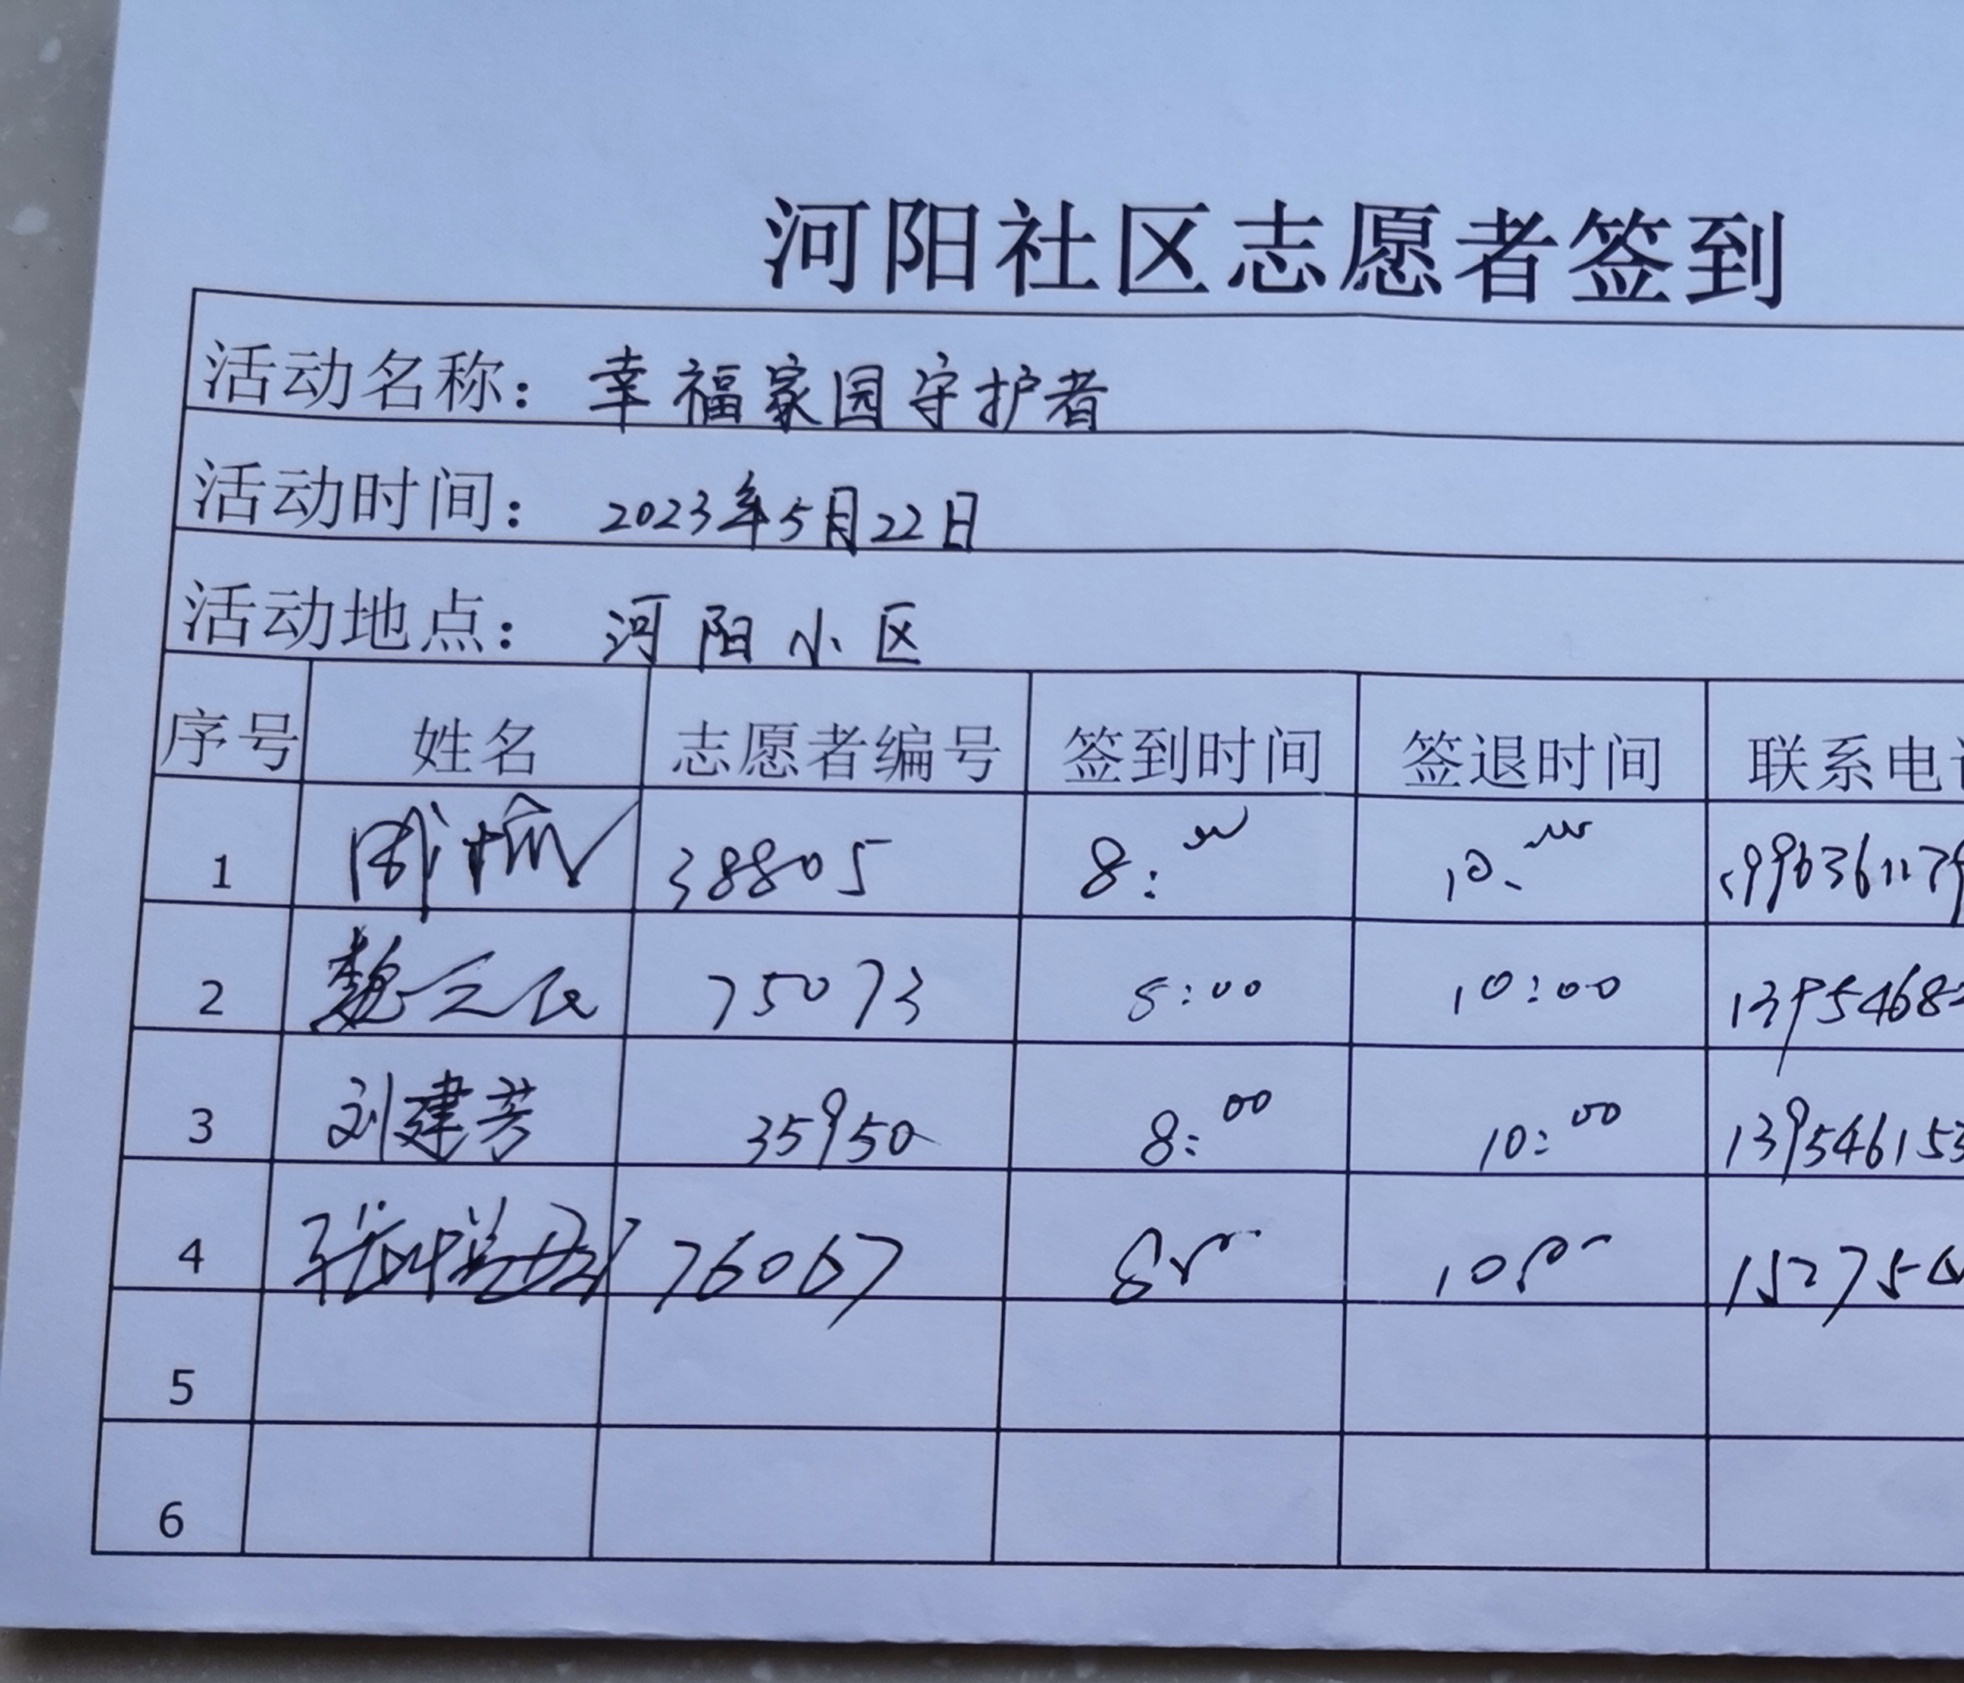 河阳社区志愿者签到
活动名称：幸福家园守护者
活动时间：2023年5月22日
活动地点：河阳小区
序号 姓名 志愿者编号 签到时间 签退时间 联系电
1 38805 8:00 10:00
2 魏云民 75073 8:00 10:00 13954682
3 刘建芳 35950 8:00 10:00 139546153
4 76067 800 1000 152754
5
6